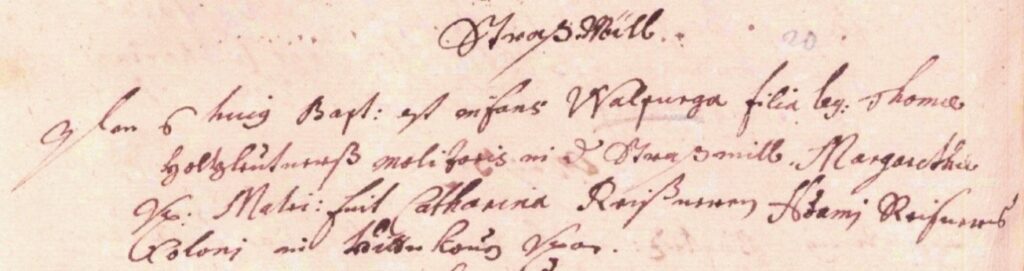 Straßmill.
20
6 huig Bapt: est infans Walpurga filia leg: Thomæ
Holzleutnerß molitoris in d Straßmill. Margarethæ
Ux. Matri: fuit Catharina Reißnerin Adami Reisners
Coloni in Uxor.